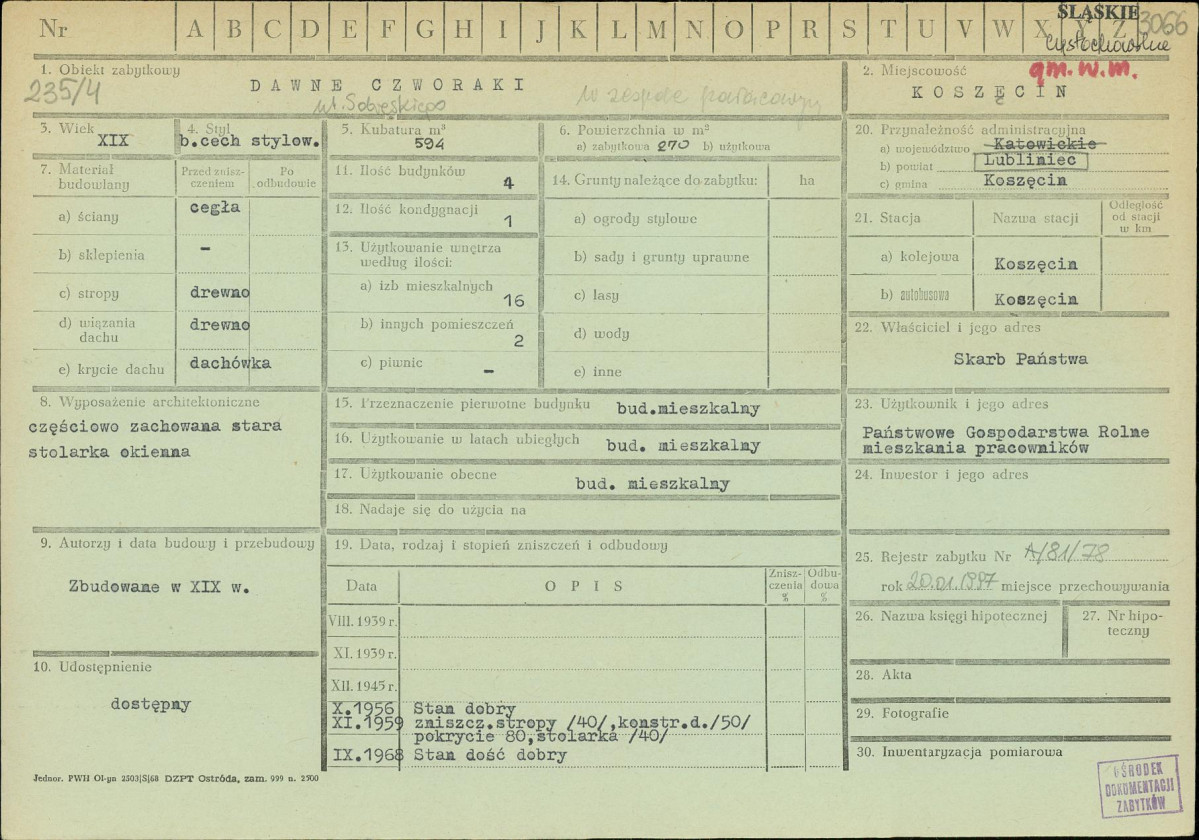 Nr A B C D E F G H I J K L M N O P R S T U V W X Y Z
ŚLĄSKIE 3066
gm. w. m.
1. Obiekt zabytkowy
235/4
DAWNE CZWORAKI
ul. Sobieskiego
w zespole pałacowym
2. Miejscowość
KOSZĘCIN
3. Wiek
XIX
4. Styl
b.cech stylow.
5. Kubatura m³
594
6. Powierzchnia w m²
a) zabytkowa 270 b) użytkowa
20. Przynależność administracyjna
a) województwo Katowickie
b) powiat Lubliniec
c) gmina Koszęcin
7. Materiał budowlany
Przed zniszczeniem
Po odbudowie
a) ściany cegła
b) sklepienia -
c) stropy drewno
d) wiązania dachu drewno
e) krycie dachu dachówka
11. Ilość budynków 4
12. Ilość kondygnacji 1
13. Użytkowanie wnętrza
według ilości:
a) izb mieszkalnych 16
b) innych pomieszczeń 2
c) piwnic -
14. Grunty należące do zabytku: ha
a) ogrody stylowe
b) sady i grunty uprawne
c) lasy
d) wody
e) inne
21. Stacja Nazwa stacji Odległość od stacji w km
a) kolejowa Koszęcin
b) autobusowa Koszęcin
22. Właściciel i jego adres
Skarb Państwa
8. Wyposażenie architektoniczne
częściowo zachowana stara
stolarka okienna
15. Przeznaczenie pierwotne budynku bud.mieszkalny
16. Użytkowanie w latach ubiegłych bud. mieszkalny
17. Użytkowanie obecne bud. mieszkalny
18. Nadaje się do użycia na
23. Użytkownik i jego adres
Państwowe Gospodarstwa Rolne
mieszkania pracowników
24. Inwestor i jego adres
9. Autorzy i data budowy i przebudowy
Zbudowane w XIX w.
10. Udostępnienie
dostępny
19. Data, rodzaj i stopień zniszczeń i odbudowy
Data OPIS Zniszczenia % Odbudowa %
VIII. 1939 r.
XI. 1939 r.
XII. 1945 r.
X.1956 Stan dobry
XI.1959 zniszcz.stropy /40/,konstr.d./50/
pokrycie 80,stolarka /40/
IX.1968 Stan dość dobry
25. Rejestr zabytku Nr A/81/78
rok 20.01.1997 miejsce przechowywania
26. Nazwa księgi hipotecznej
27. Nr hipoteczny
28. Akta
29. Fotografie
30. Inwentaryzacja pomiarowa
Jednor. PWH Ol-yn 2503|S|68 DZPT Ostróda, zam. 999 n. 2500
OŚRODEK
DOKUMENTACJI
ZABYTKÓW